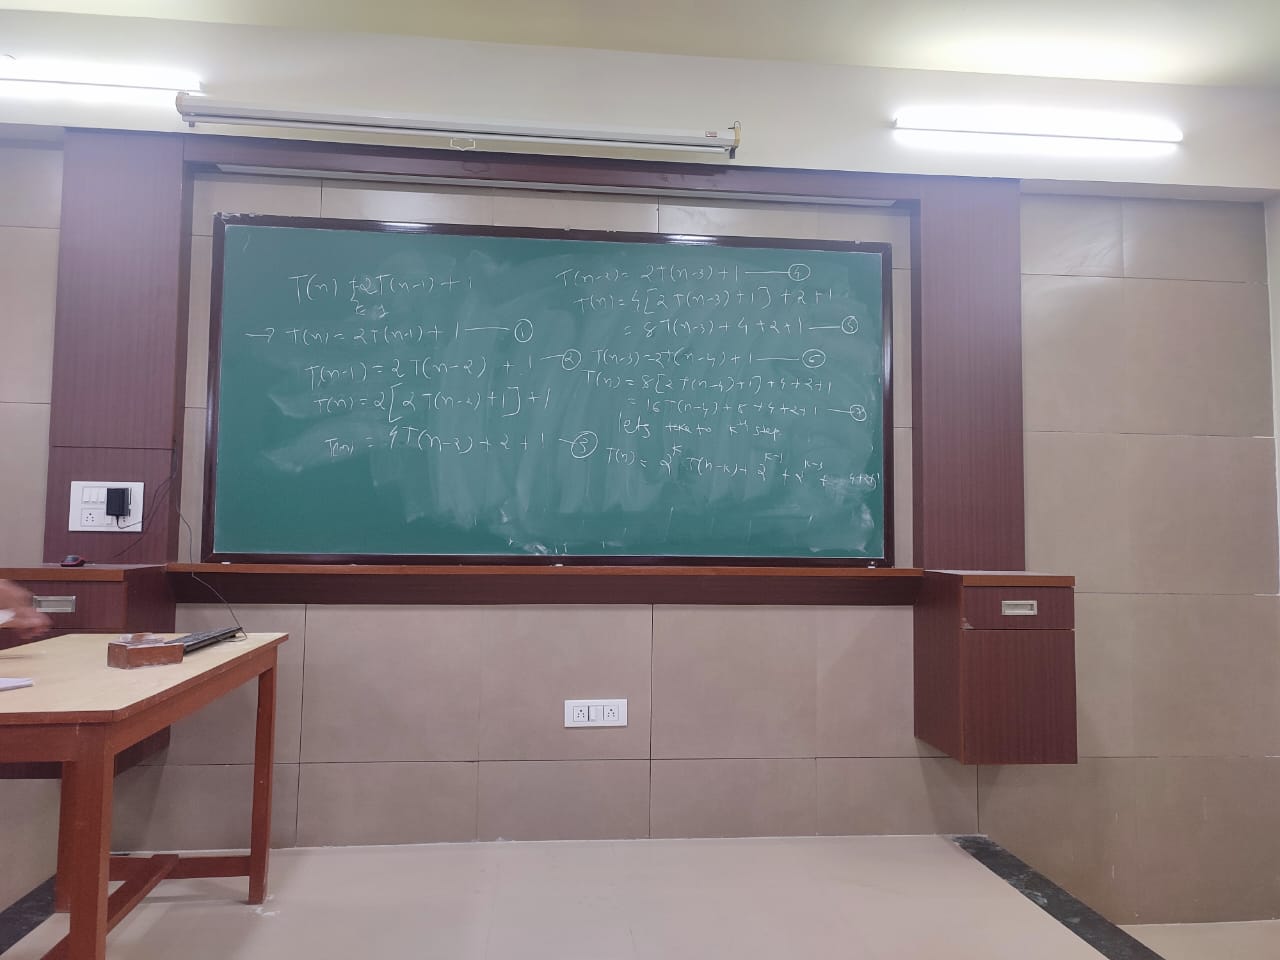 T(n) = 2T(n-1) + 1
→ T(n) = 2T(n-1) + 1 — ①
T(n-1) = 2T(n-2) + 1 — ②
T(n) = 2[2T(n-2) + 1] + 1
T(n) = 4T(n-2) + 2 + 1 — ③
T(n-2) = 2T(n-3) + 1 — ④
T(n) = 4[2T(n-3) + 1] + 2 + 1
= 8T(n-3) + 4 + 2 + 1 — ⑤
T(n-3) = 2T(n-4) + 1 — ⑥
T(n) = 8[2T(n-4) + 1] + 4 + 2 + 1
= 16T(n-4) + 8 + 4 + 2 + 1 — ⑦
lets take to kth step
T(n) = 2^k T(n-k) + 2^(k-1) + 2^(k-2) + 4+2+1